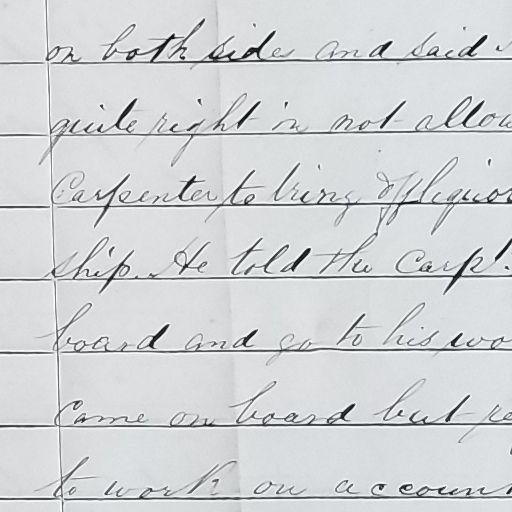 on both side and said
quite right in not allow
Carpenter to bring off liquor
ship. He told the Carp!.
board and go to his wo
Came on board but re
to work on account